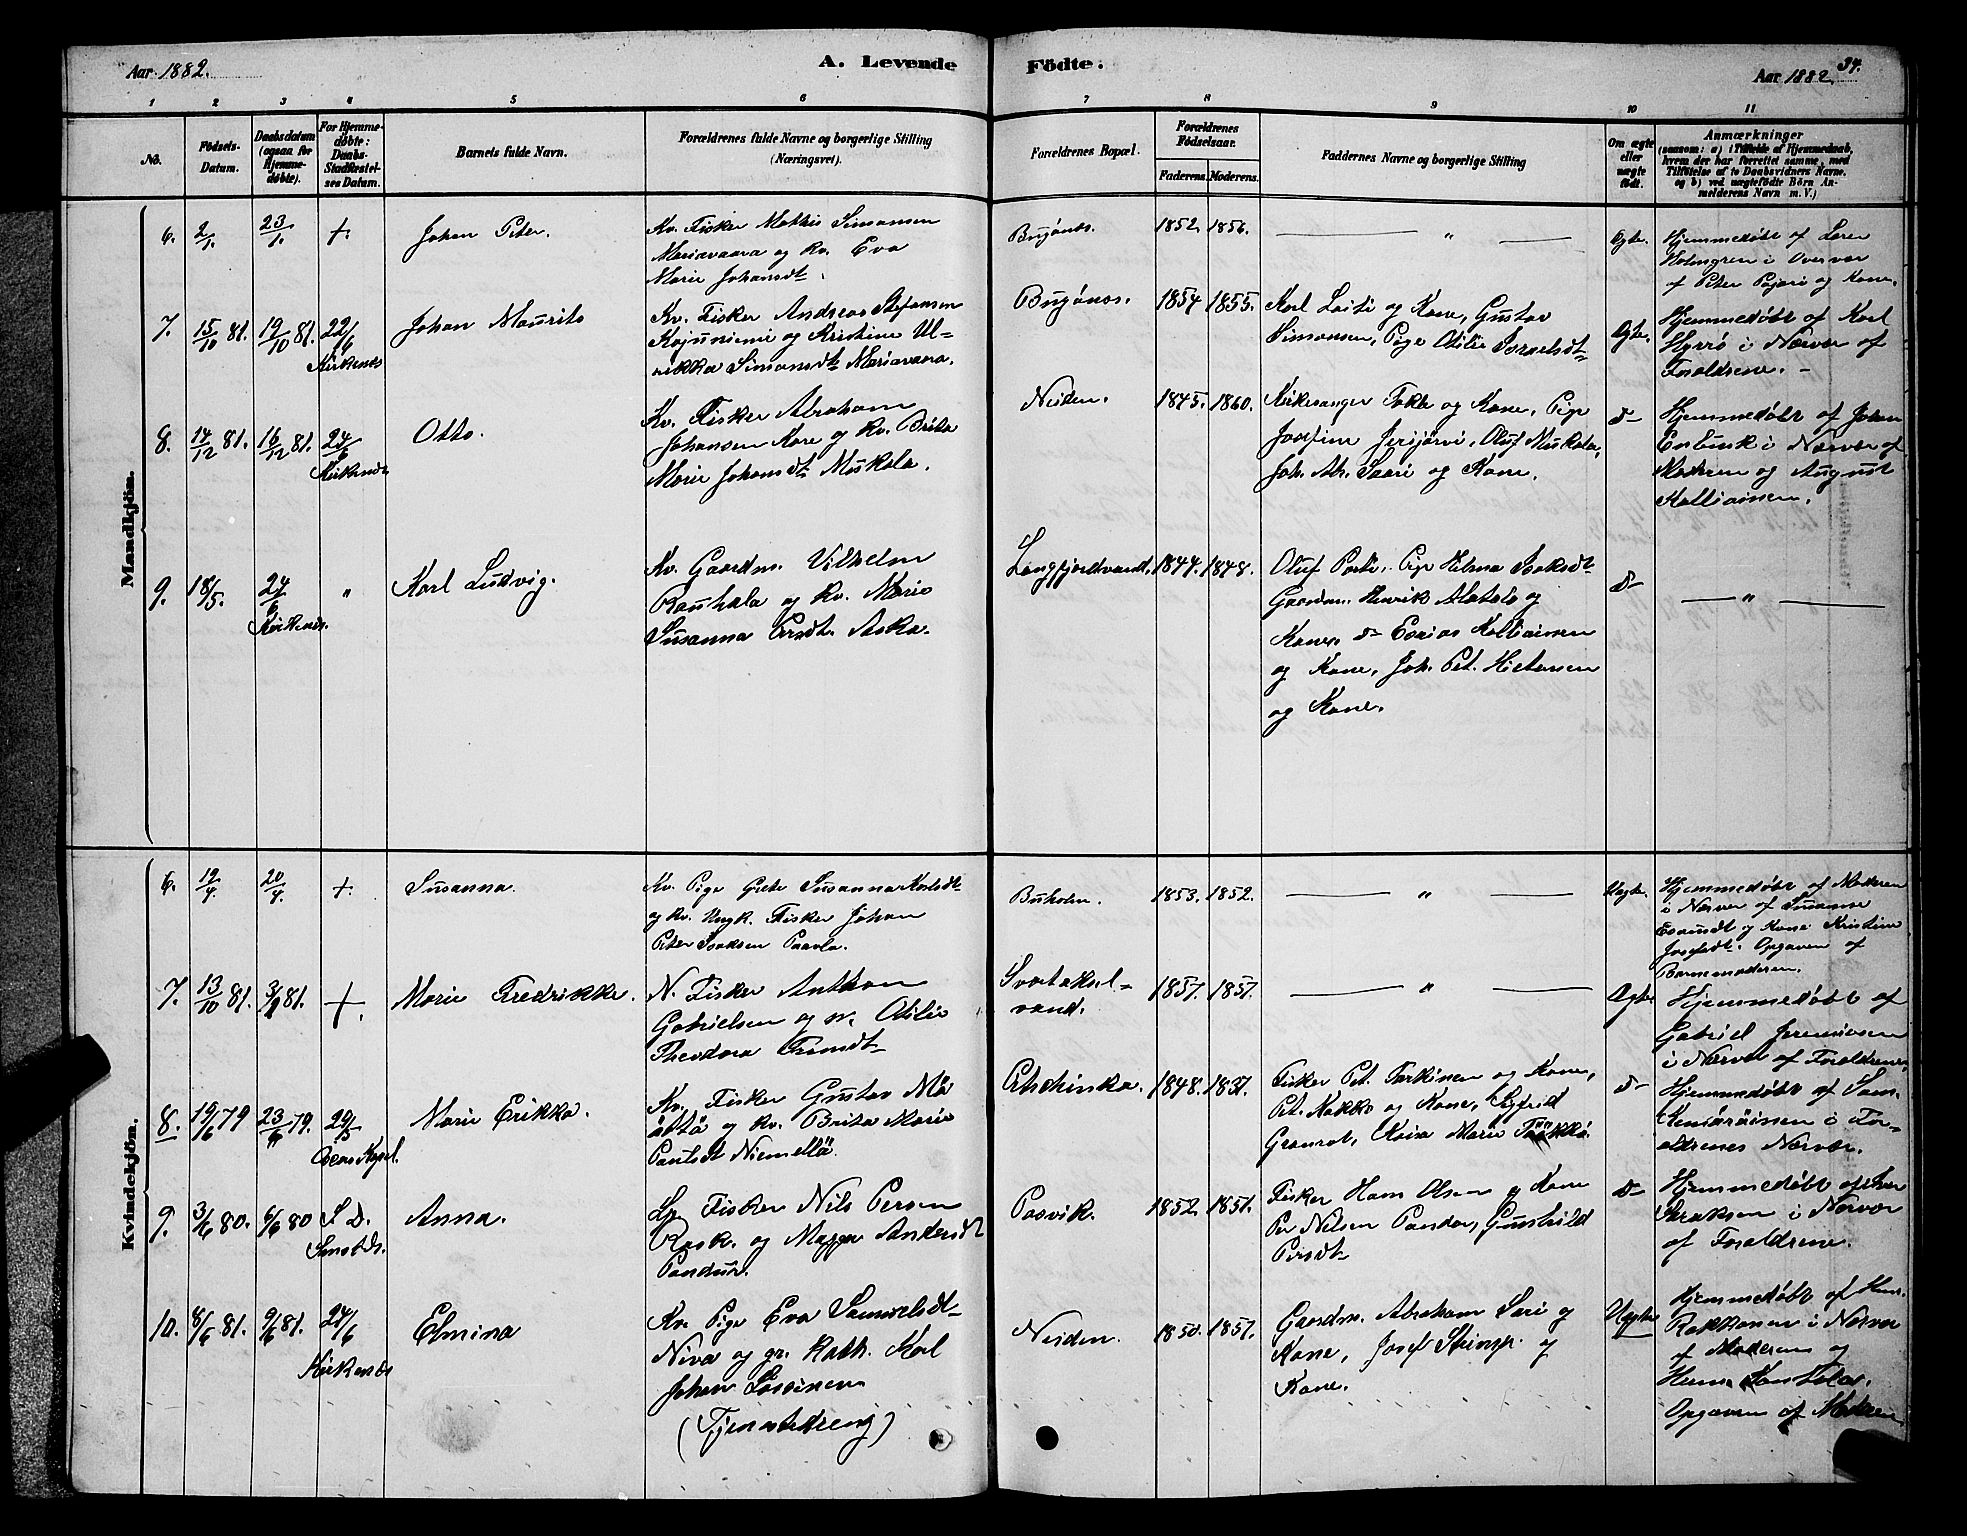 Aar 1882.
A. Levende Födte.
Aar 1882.
34.
1 2 3 4 5 6 7 8 9 10 11
No.
Födsels-
Datum.
Daabsdatum
(ogsaa for
Hjemme-
döbte).
For Hjemme-
døbte:
Daabs-
Stadfæstel-
ses Datum.
Barnets fulde Navn.
Forældrenes fulde Navne og borgerlige Stilling
(Næringsvei).
Forældrenes Bopæl.
Forældrenes
Födselsaar.
Faderens. Moderens.
Faddernes Navne og borgerlige Stilling
Om ægte
eller
uægte
födt.
Anmærkninger
(saasom: a) i Tilfælde af Hjemmedaab,
hvem der har forrettet samme, med
Tilföielse af to Daabsvidners Navne,
og b) ved uægtefödte Börn An-
melderens Navn m. V.)
Mandkjön.
6. 2/1. 23/1. +. Johan Peter.
Kv. Fisker Mathis Simonsen
Mariavaara og Kv. Eva
Marie Johansdt.
Bugönes. 1852. 1856. — " — Ægte.
Hjemmedöbt af
Holmgren i Overvær
af Peter Pajari og Kone.
7. 15/10 81. 19/10 81. 22/6 Kirkenes
Johan Maurits
Kv. Fisker Andreas Stefansen
Kajuniemi og Kristine Ul-
rikka Simonsdt Mariavaara.
Bugönes. 1854 1855.
Karl Laiti og Kone, Gustav
Simonsen, Pige Otilie Israelsdt
Ægte.
Hjemmedöbt af Karl
i Nærvær af
Foraldrene. -
8. 14/12 81. 16/12 81. 24/6 Kirkenes
Otto.
Kv. Fisker Abraham
Johansen Kare og Kv. Brita
Marie Johansdt Muskala.
Neiden. 1845. 1860.
Kirkesanger Fokte og Kone, Pige
Josefine Jerijärvi, Oluf Muskala,
Joh. Ah. Saari og Kone.
d-
Hjemmedöbt af Johan
i Nærvær af
Moderen og August
Koltiainen.
9. 18/5. 24/6 Kirkenes. "
Karl Ludvig.
Kv. Gaardm. Vilhelm
Rauhala og Kv. Marie
Susanna Persdt. Aska.
Langfjordvand. 1844. 1848.
Oluf Porti, Pige Hilma Isaksdt
Gaardm. Henrik Alatalo og
Kone, d- Esaias Koltiainen
og Kone, Joh. Pet. Hietanen
og Kone.
d- — " —
Kvindekjön.
6. 19/4. 20/4. +. Susanna.
Kv. Pige Grete Susanna Karlsdt
og Kv. Ungk. Fisker Johan
Peter Isaksen Paavla.
Buholm. 1853. 1852. — " — Uægte.
Hjemmedöbt af Moderen
i Nærvær af Susanne
og Kone Kristine
Josefsdt. Opgaven af
Barnemoderen.
7. 13/10 81. 81. +. Marie Fredrikke.
N. Fisker Anthon
Gabrielsen og n. Otilie
Theodora Trondt
Svartaksel-
vand. 1857. 1857. — " — Ægte
Hjemmedöbt af
Gabriel Jeremiasen
i Nærvær af Foraldrene.
8. 19/6 79 23/6 79. 29/5 Oscars Kapel.
Marie Erikka.
Kv. Fisker Gustav Mä
ättä og Kv. Brita Marie
Paulsdt Niemellä.
Petschinka. 1848. 1837.
Fisker Pet. Tarkinen og Kone,
Pet. Kokko og Kone, Sigfrid
Granrot, Kaisa Marie
d-
Hjemmedöbt af Sam.
Kemäräinen i For-
aldrenes Nærvær.
9. 3/6 80. 6/6 80 S. D. Smstds.
Anna.
Lp. Fisker Nils Persen
Rask. og Magga Andersdt
Pandur.
Pasvik. 1852. 1851.
Fisker Hans Olsen og Kone
Per Nilsen Pandur, Gunhild
Persdt
d-
Hjemmedöbt af Iver
i Nærvær
af Foraldrene.
10. 8/6 81. 9/6 81. 24/6 Kirkenes
Elmina
Kv. Pige Eva Samuelsdt
Niva og gr. Kath. Karl
Johan Lassinen
(Tjenestedreng)
Neiden. 1850. 1857.
Gaardm. Abraham Sari og
Kone, Josef Stimp og
Kone.
Uægte
Hjemmedöbt af
Rokkonen i Nærvær
af Moderen og
Opgaven af Moderen.